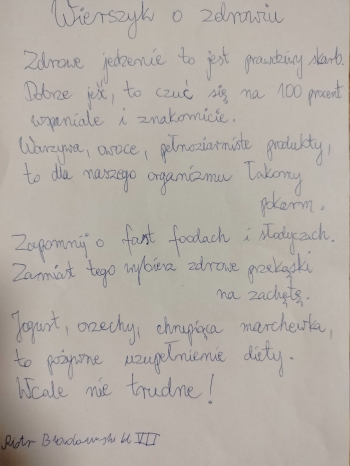 Wierszyk o zdrowiu
Zdrowe jedzenie to jest prawdziwy skarb.
Dobrze jeść, to czuć się na 100 procent
wspaniale i znakomicie.
Warzywa, owoce, pełnoziarniste produkty,
to dla naszego organizmu łakomy
pokarm.
Zapomnij o fast foodach i słodyczach.
Zamiast tego wybierz zdrowe przekąski
na zachętę.
Jogurt, orzechy, chrupiąca marchewka,
to pożywne uzupełnienie diety.
Wcale nie trudne!
Piotr VII